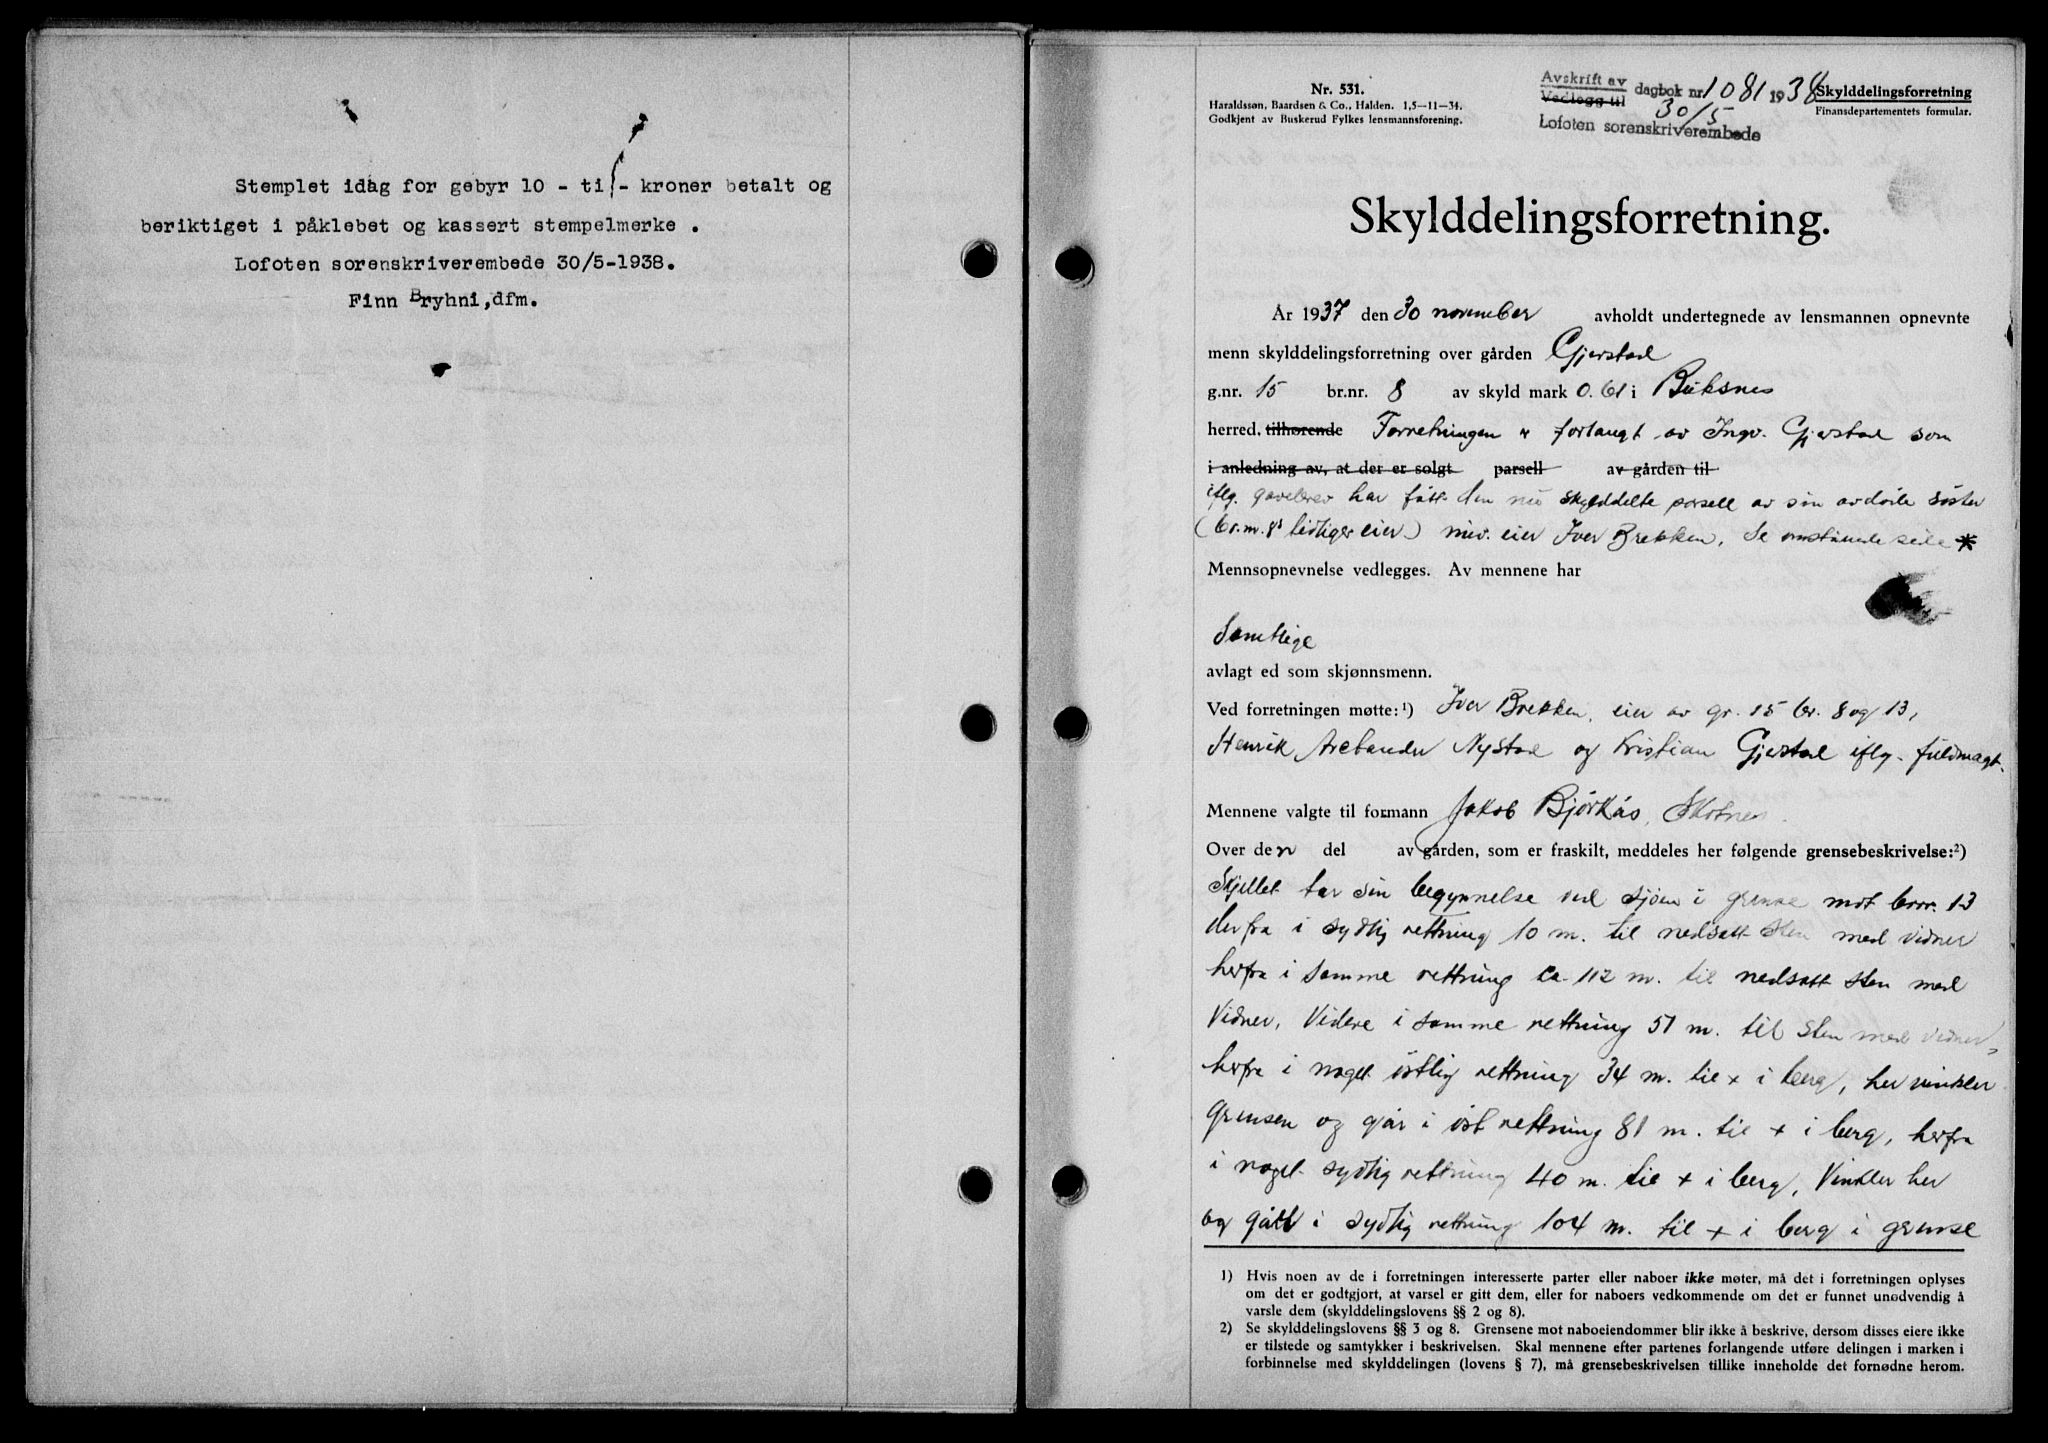 Stemplet idag for gebyr 10 - ti - kroner betalt og
beriktiget i påklebet og kassert stempelmerke .
Lofoten sorenskriverembede 30/5-1938.
Finn Bryhni, dfm.
Nr. 531.
Haraldssøn, Baardsen & Co., Halden. 1,5—11—34.
Godkjent av Buskerud Fylkes lensmannsforening.
Avskrift av
Vedlegg til dagbok nr 1081 1938
30/5
Lofoten sorenskriverembede
Skylddelingsforretning
Finansdepartementets formular.
Skylddelingsforretning.
År 1937 den 30 november avholdt undertegnede av lensmannen opnevnte
menn skylddelingsforretning over gården Gjerstad
g.nr. 15 br.nr. 8 av skyld mark 0.61 i Buksnes
herred. tilhørende Forretningen er forlangt av Ingv. Gjerstad som
i anledning av, at der er solgt parsell av gården til
iflg. gavebrev har fått den nu skylddelte parsell av sin avdøde søster
(br.nr. 8s tidliger eier) nuv. eier Iver Brekken. Se omstående side *
Mennsopnevnelse vedlegges. Av mennene har
Samtlige
avlagt ed som skjønnsmenn.
Ved forretningen møtte:¹) Iver Brekken, eier av gr. 15 br. 8 og 13,
Henrik Nystad og Kristian Gjerstad iflg. fuldmagt.
Mennene valgte til formann Jakob Bjørkås, Skotnes.
Over den del av gården, som er fraskilt, meddeles her følgende grensebeskrivelse:²)
Skjellet tar sin begynnelse ved sjøen i grense mot br.nr. 13
derfra i sydlig rettning 10 m. til nedsatt sten med vidner
herfra i samme rettning ca 112 m. til nedsatt sten med
Vidner, Videre i samme rettning 51 m. til sten med vidner,
herfra i noget østlig rettning 34 m. til + i berg, her vinkler
grensen og går i øst rettning 81 m. til + i berg, herfra
i noget sydlig rettning 40 m. til + i berg, Vinkler her
og gått i sydlig rettning 104 m. til + i berg i grense
1) Hvis noen av de i forretningen interesserte parter eller naboer ikke møter, må det i forretningen oplyses
om det er godtgjort, at varsel er gitt dem, eller for naboers vedkommende om det er funnet unødvendig å
varsle dem (skylddelingslovens §§ 2 og 8).
2) Se skylddelingslovens §§ 3 og 8. Grensene mot naboeiendommer blir ikke å beskrive, dersom disses eiere ikke
er tilstede og samtykker i beskrivelsen. Skal mennene efter partenes forlangende utføre delingen i marken i
forbinnelse med skylddelingen (lovens § 7), må grensebeskrivelsen tillike inneholde det fornødne herom.